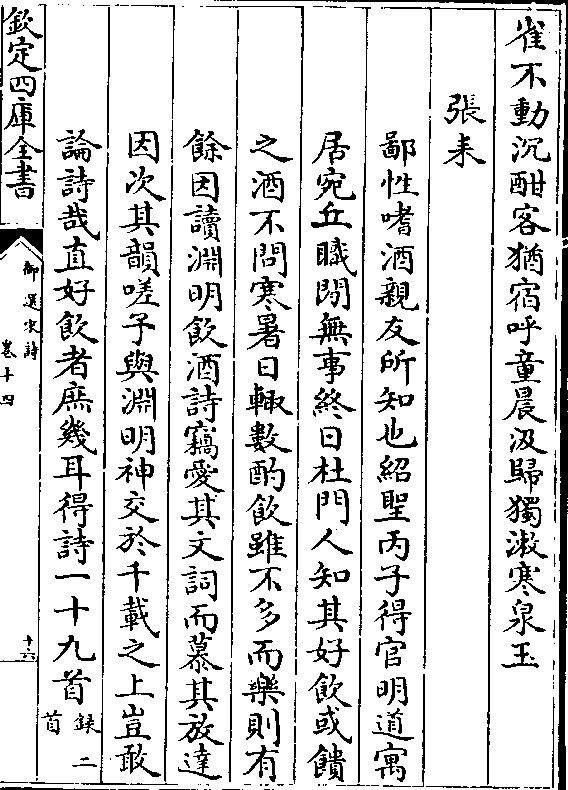 雀不動沉酣客猶宿呼童晨汲歸獨漱寒泉玉
張耒
鄙性嗜酒親友所知也紹聖丙子得官明道寓
居宛丘職閒無事終日杜門人知其好飲或饋
之酒不問寒暑日輙數酌飲雖不多而樂則有
餘因讀淵明飲酒詩竊愛其文詞而慕其放達
因次其韻嗟予與淵明神交於千載之上豈敢
論詩哉直好飲者庶幾耳得詩一十九首錄二
首
欽定四庫全書
御選宋詩
卷十四
十六